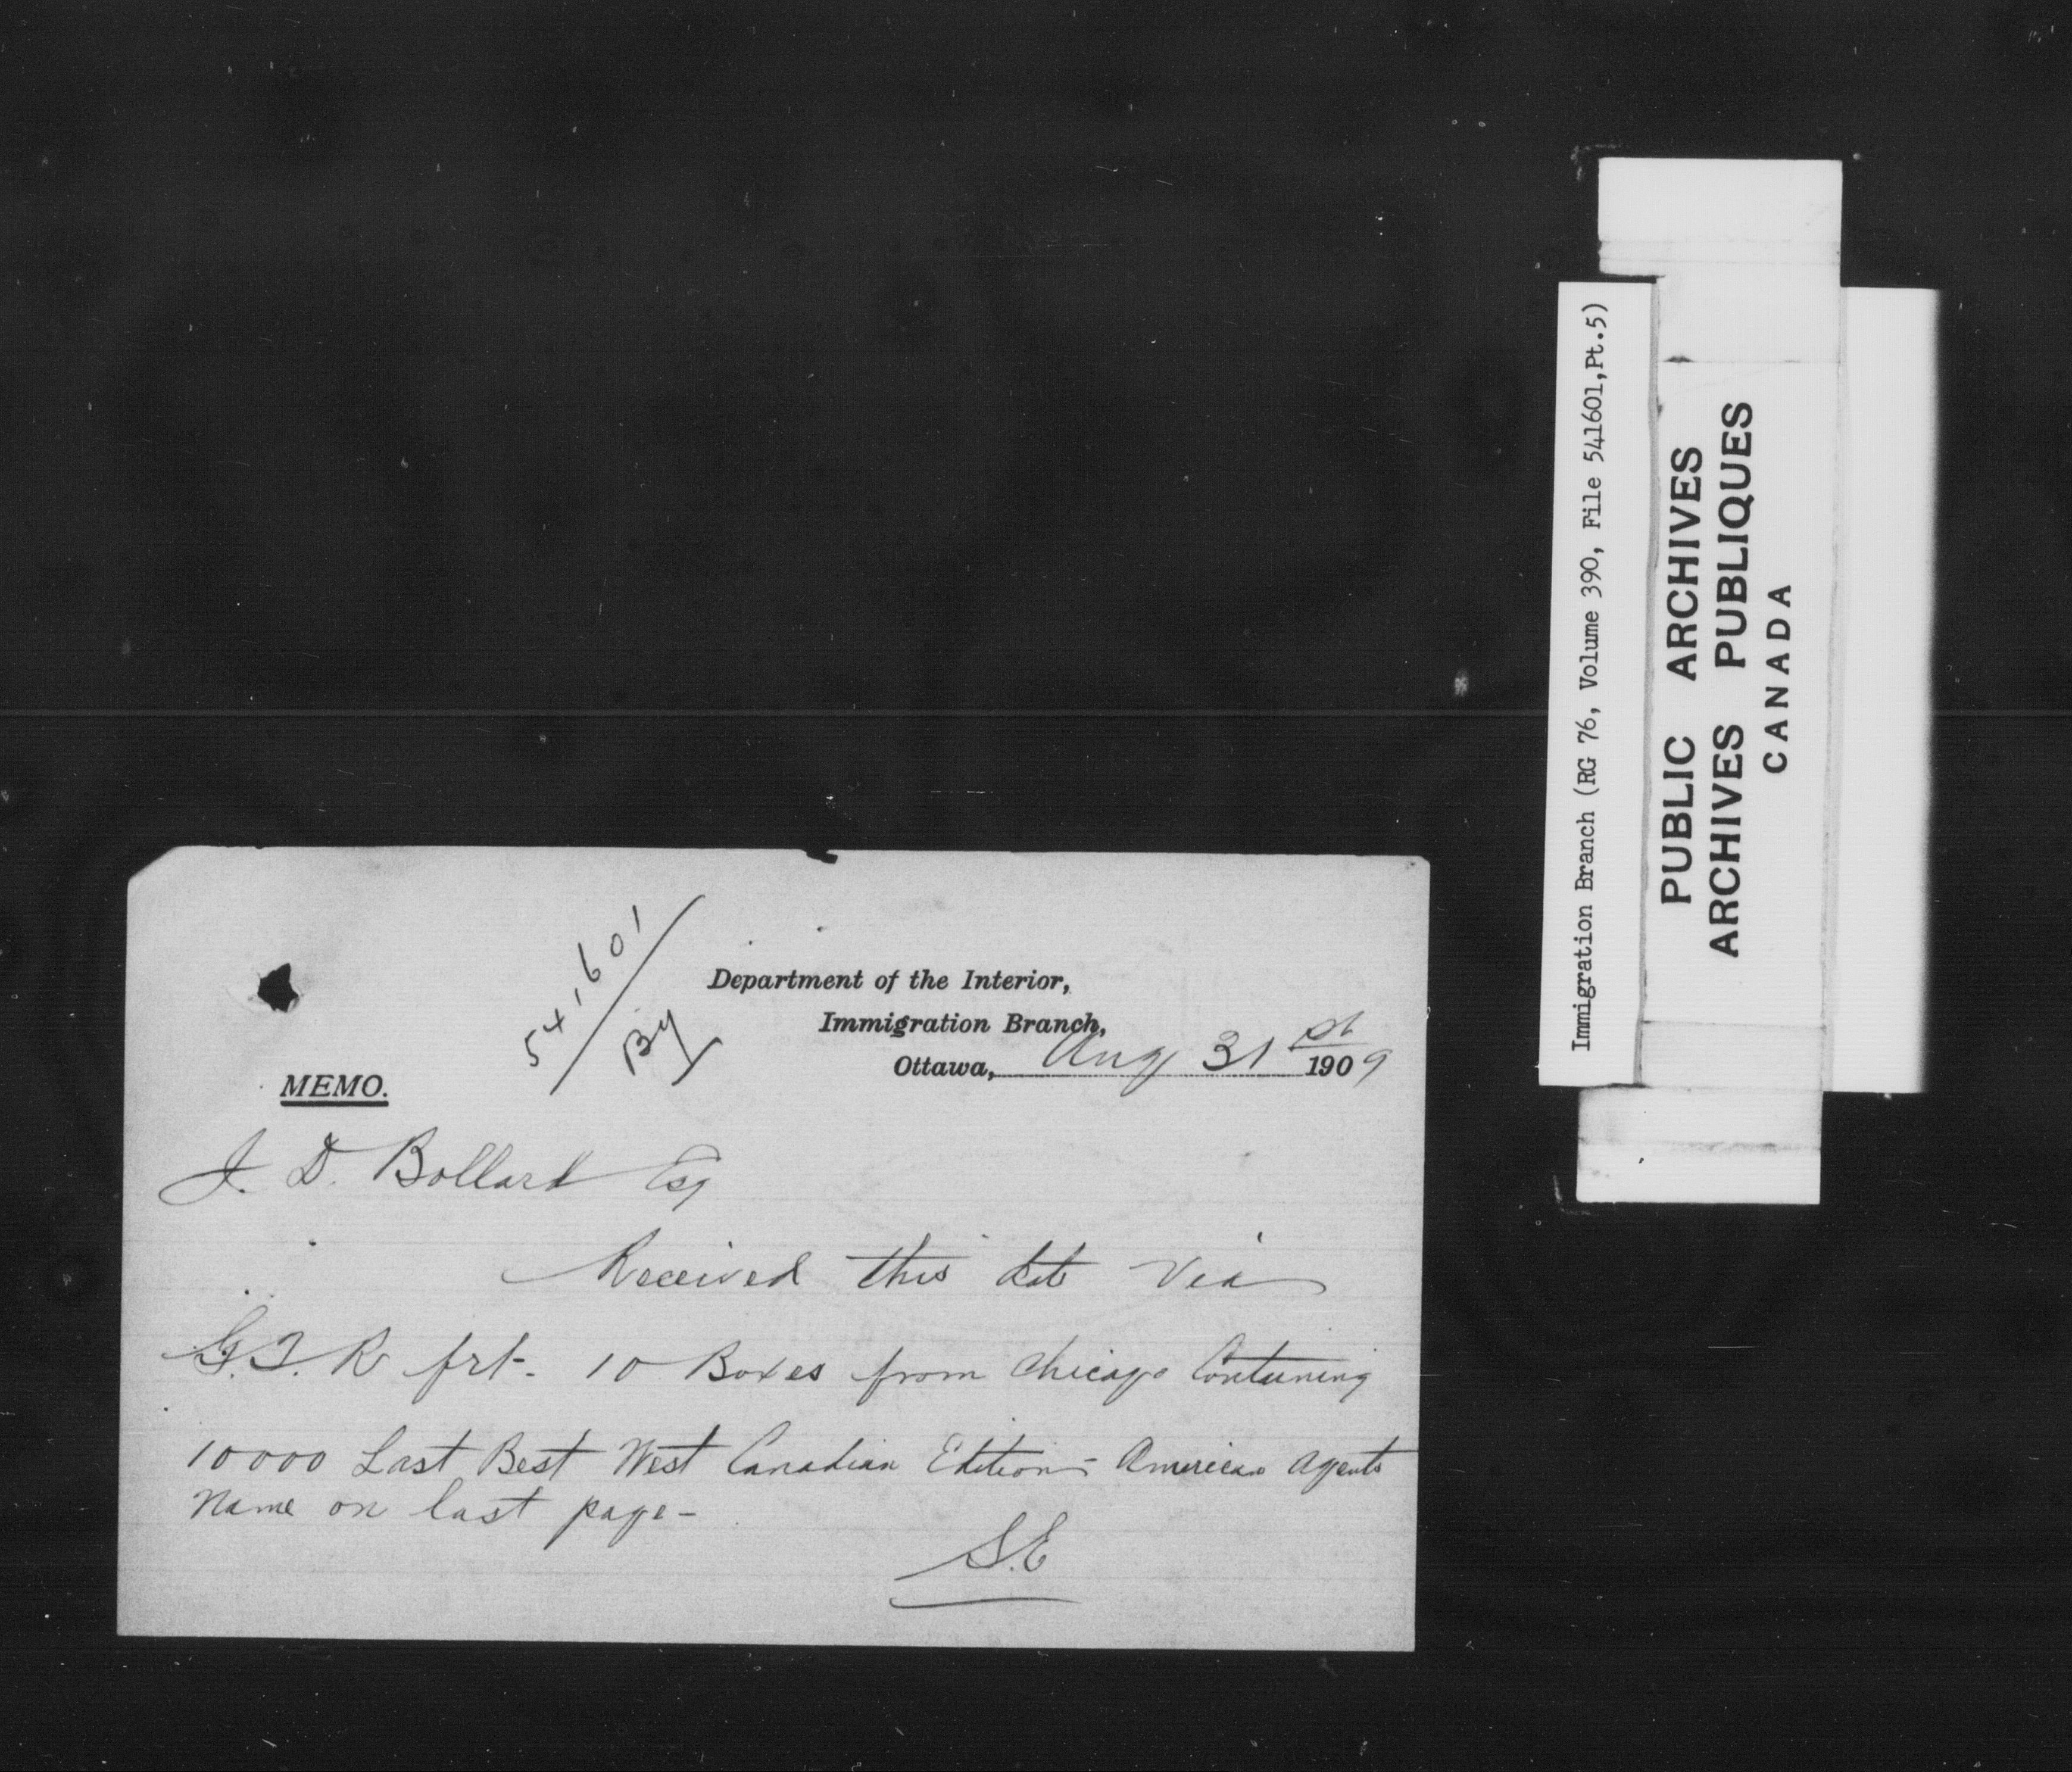 54,601
By
Department of the Interior,
Immigration Branch,
Ottawa, Aug 31st 1909
MEMO.
J. D. Bollard Esq
Received this date via
G.T.R frt- 10 Boxes from Chicago Containing
10000 Last Best West Canadian Edition- American Agents
Name on last page-
S.E
Immigration Branch (RG 76, Volume 390, File 541601,Pt.5)
PUBLIC ARCHIVES
ARCHIVES PUBLIQUES
CANADA